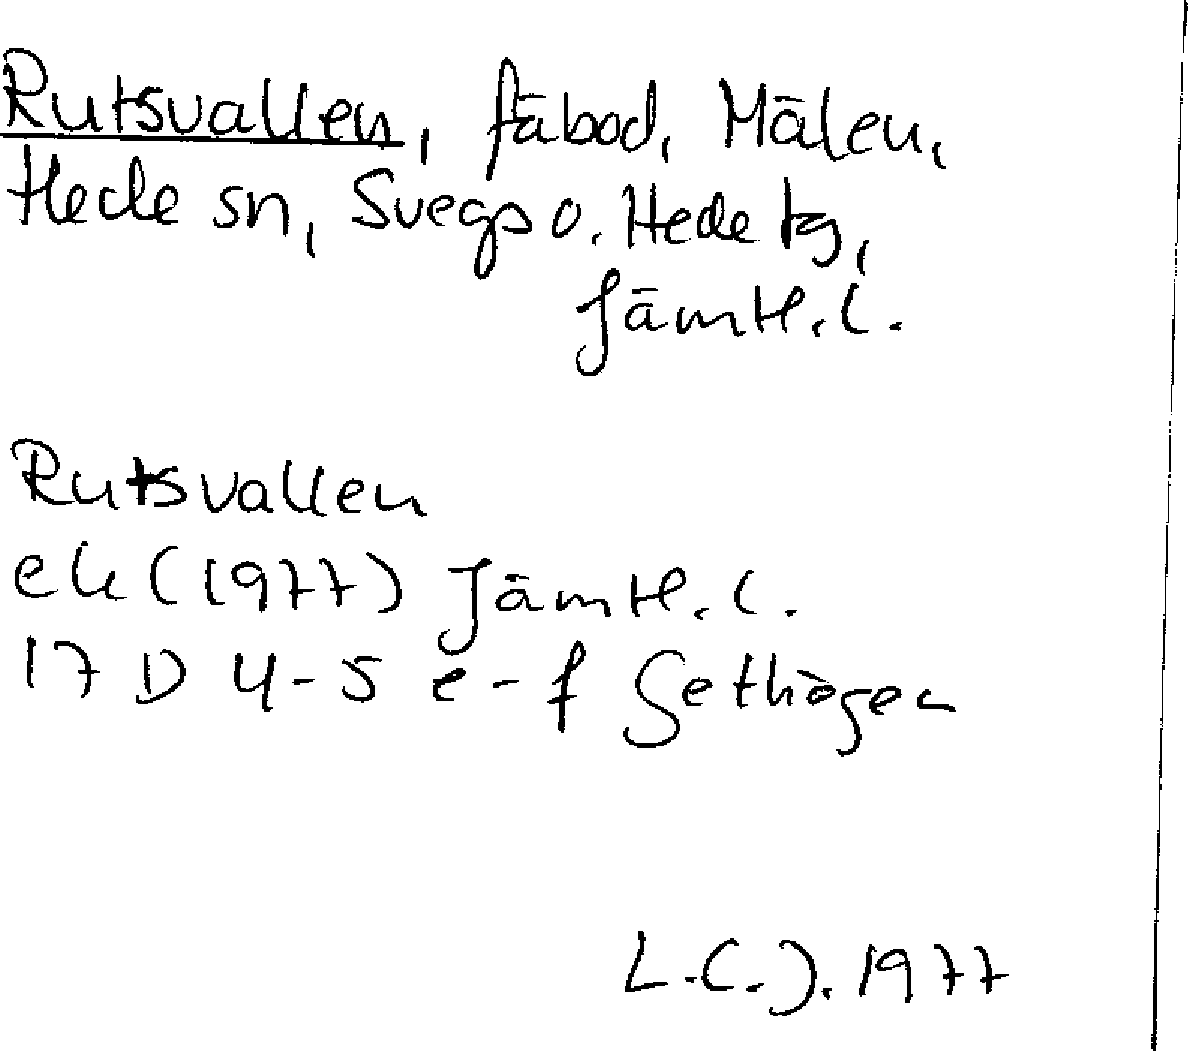 Rutsvallen, fäbod, Mälen,
Hede sn, Svegs o. Hede tg,
Jämtl. l.
Rutsvallen
ek (1977) Jämtl. l.
17 D 4-5 e-f Gethögen
L.C.J. 1977